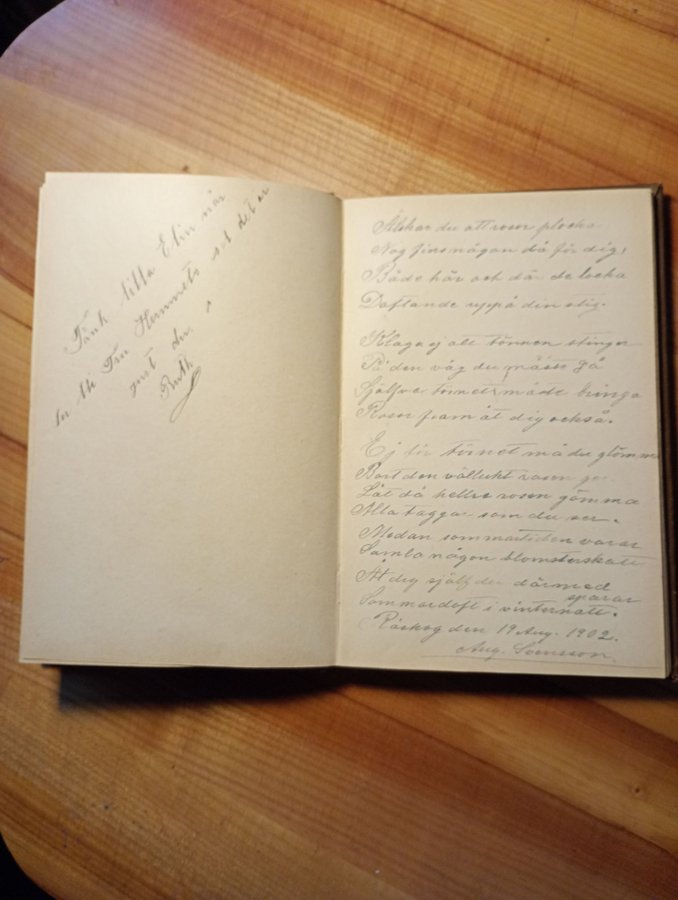 Tänk lilla Elin när
det är
Ruth
Älskar du att rosor plocka
Nog fins någon då för dig,
Både här och där de locka
Doftande uppå din stig.
Klaga ej att törnen stinga
På den väg du måste gå
Själfva törnet måste bringa
Rosor fram åt dig också.
Ej för törnet må du glömma
Bort den vällukt rosen ger
Låt då hellre rosen gömma
Alla taggar som du ser.
Medan sommartiden varar
Samla någon blomsterskatt
Åt dig själf du därmed
sparar
Sommardoft i vinternatt.
Råskog den 19 Aug. 1902.
Aug. Svensson.